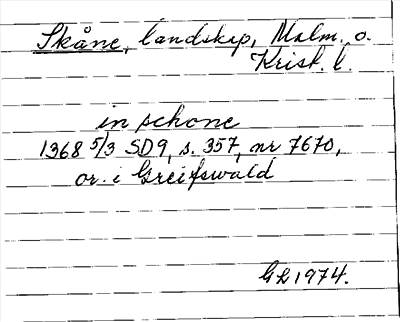 Skåne, landskap, Malm. o.
Krist. l.
in schone
1368 5/3 SD9, s. 357, nr 7670,
or. i Greifswald
GL 1974.